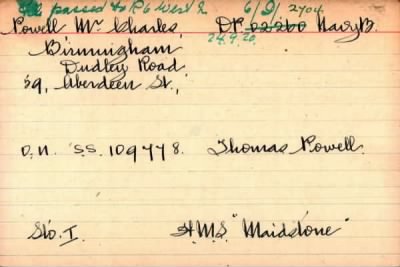 passed to R 6 West 2 6/9/ 2704
Powell Mr Charles, DP 02260 Navy B.
24.9.20.
Birmingham
Dudley Road
59, Aberdeen St.,
O.N. S.S. 109778. Thomas Powell.
Sto. I. H.M.S "Maidstone"